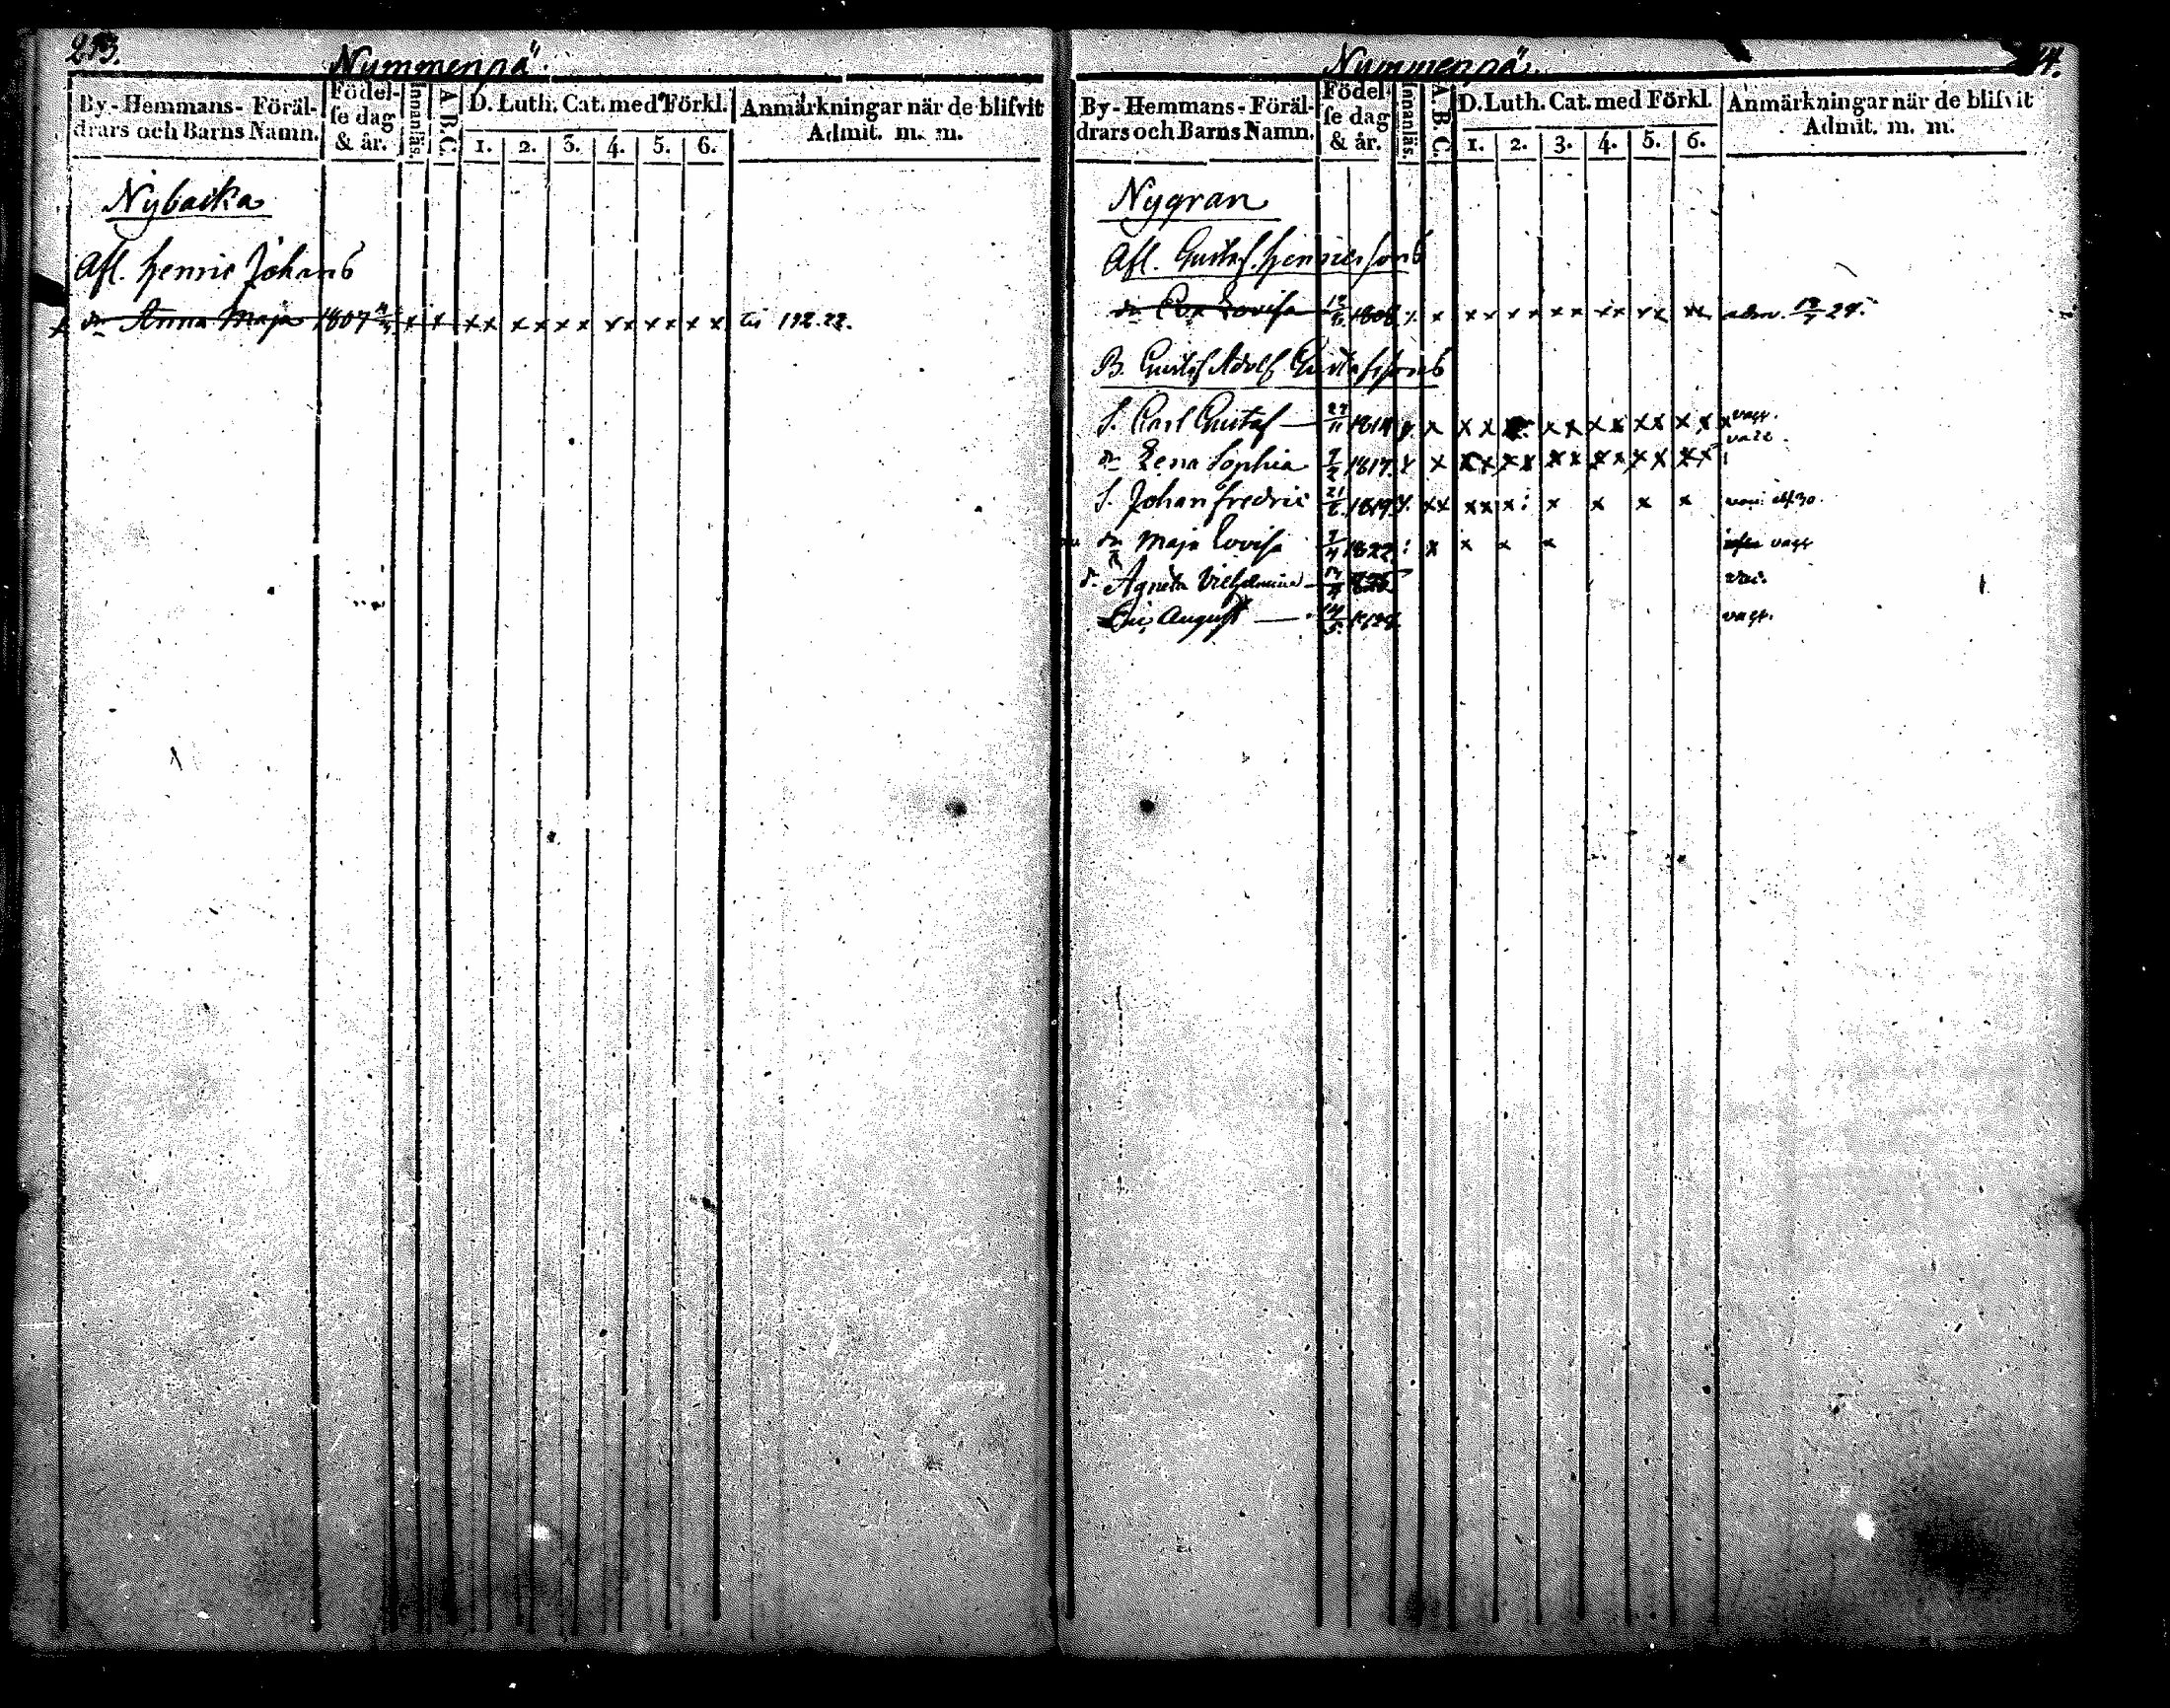 253.
Nummenpä
By-Hemmans-Föräl-
drars och Barns Namn.
Födel-
se dag
& år.
Innanläs.
A. B. C.
D. Luth. Cat. med Förkl.
1. 2. 3. 4. 5. 6.
Anmärkningar när de blifvit
Admit. m. m.
Nybacka
Afl. Henric Johans
dr Anna Maja 1807 x x xx xx xx xx xx xx
Nummenpä
By-Hemmans-Föräl-
drars och Barns Namn.
Födel-
se dag
& år.
Innanläs.
A. B. C.
D. Luth. Cat. med Förkl.
1. 2. 3. 4. 5. 6.
Anmärkningar när de blifvit
Admit. m. m.
Nygran
Afl. Gustaf Henricsons
dr Eva Lovisa 1808 x x xx xx xx xx xx xx adm.
B. Gustaf Adolf Gustafssons
S. Carl Gustaf 1814 x xx
dr Lena Sophia 1817 x x xx xx xx xx xx xx
S. Johan Fredric 21/6 1819 xx xx x x x x x
dr Maja Lovisa 1822 x x x x vacc
d. Agneta Vilhelmina
August vacc.